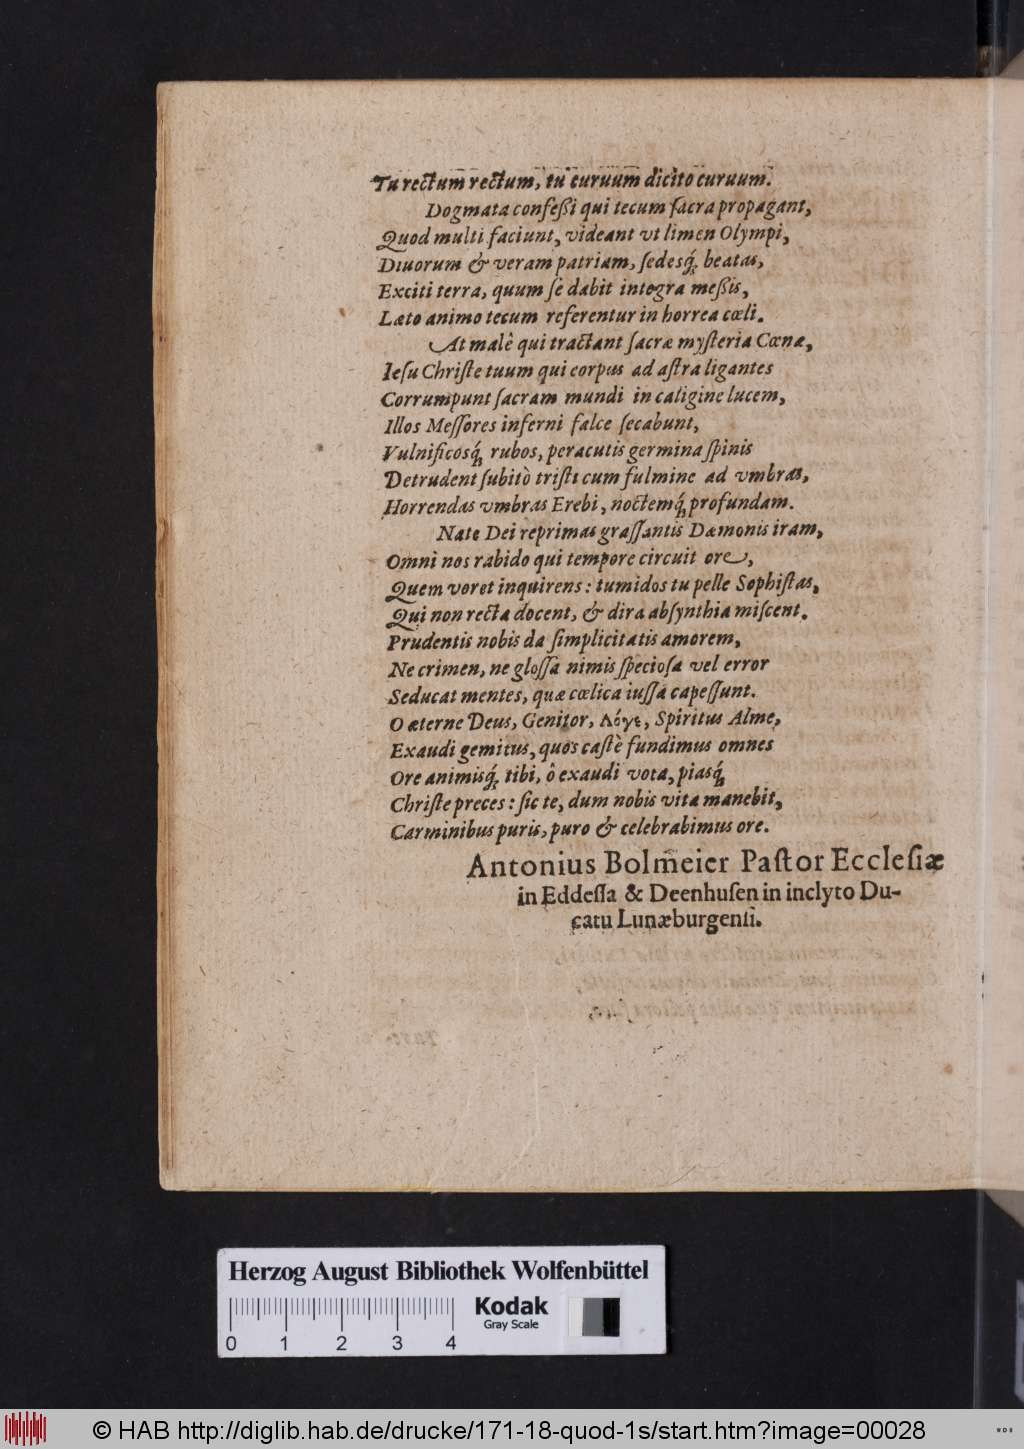 Tu rectum rectum, tu curuum dicito curuum.
Dogmata confeßi qui tecum ſacra propagant,
Quod multi faciunt, videant vt limen Olympi,
Diuorum & veram patriam, ſedesq́; beatas,
Exciti terra, quum ſe dabit integra meßis,
Læto animo tecum referentur in horrea cœli.
At malè qui tractant ſacræ myſteria Cœnæ,
Ieſu Chriſte tuum qui corpus ad aſtra ligantes
Corrumpunt ſacram mundi in caligine lucem,
Illos Meſſores inferni falce ſecabunt,
Vulnificosq́; rubos, peracutis germina ſpinis
Detrudent ſubitò triſti cum fulmine ad vmbras,
Horrendas vmbras Erebi, noctemq́; profundam.
Nate Dei reprimas graſſantis Dæmonis iram,
Omni nos rabido qui tempore circuit ore,
Quem voret inquirens: tumidos tu pelle Sophiſtas,
Qui non recta docent, & dira abſynthia miſcent.
Prudentis nobis da ſimplicitatis amorem,
Ne crimen, ne gloſſa nimis ſpecioſa vel error
Seducat mentes, quæ cœlica iuſſa capeſſunt.
O æterne Deus, Genitor, Λόγε, Spiritus Alme,
Exaudi gemitus, quos caſtè fundimus omnes
Ore animisq́; tibi, ô exaudi vota, piasq́;
Chriſte preces: ſic te, dum nobis vita manebit,
Carminibus puris, puro & celebrabimus ore.
Antonius Bolmeier Paſtor Eccleſiæ
in Eddeſſa & Deenhuſen in inclyto Du-
catu Lunæburgenſi.
Herzog August Bibliothek Wolfenbüttel
0 1 2 3 4
Kodak
Gray Scale
© HAB http://diglib.hab.de/drucke/171-18-quod-1s/start.htm?image=00028